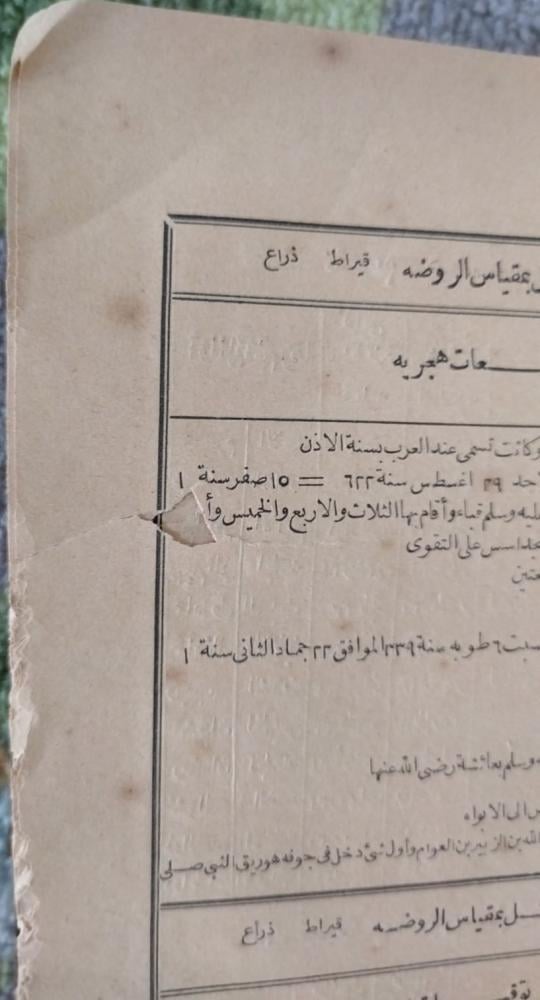 بمقياس الروضه قيراط ذراع
ـعات هجريه
وكانت تسمى عند العرب بسنة الاذن
٢٩ اغسطس سنة ٦٢٢ = ١٥ صفر سنة ١
عليه وسلم قباء وأقام بها الثلاث والاربع والخميس وأ
اسس على التقوى
٦ طوبه سنة ٣٣٩ الموافق ٢٢ جماد الثانى سنة ١
وسلم بعائشة رضى الله عنها
الى الابواء
الله بن الزبير بن العوام وأول شئ دخل فى جوفه هو ريق النبى صلى
ـل بمقياس الروضـه قيراط ذراع